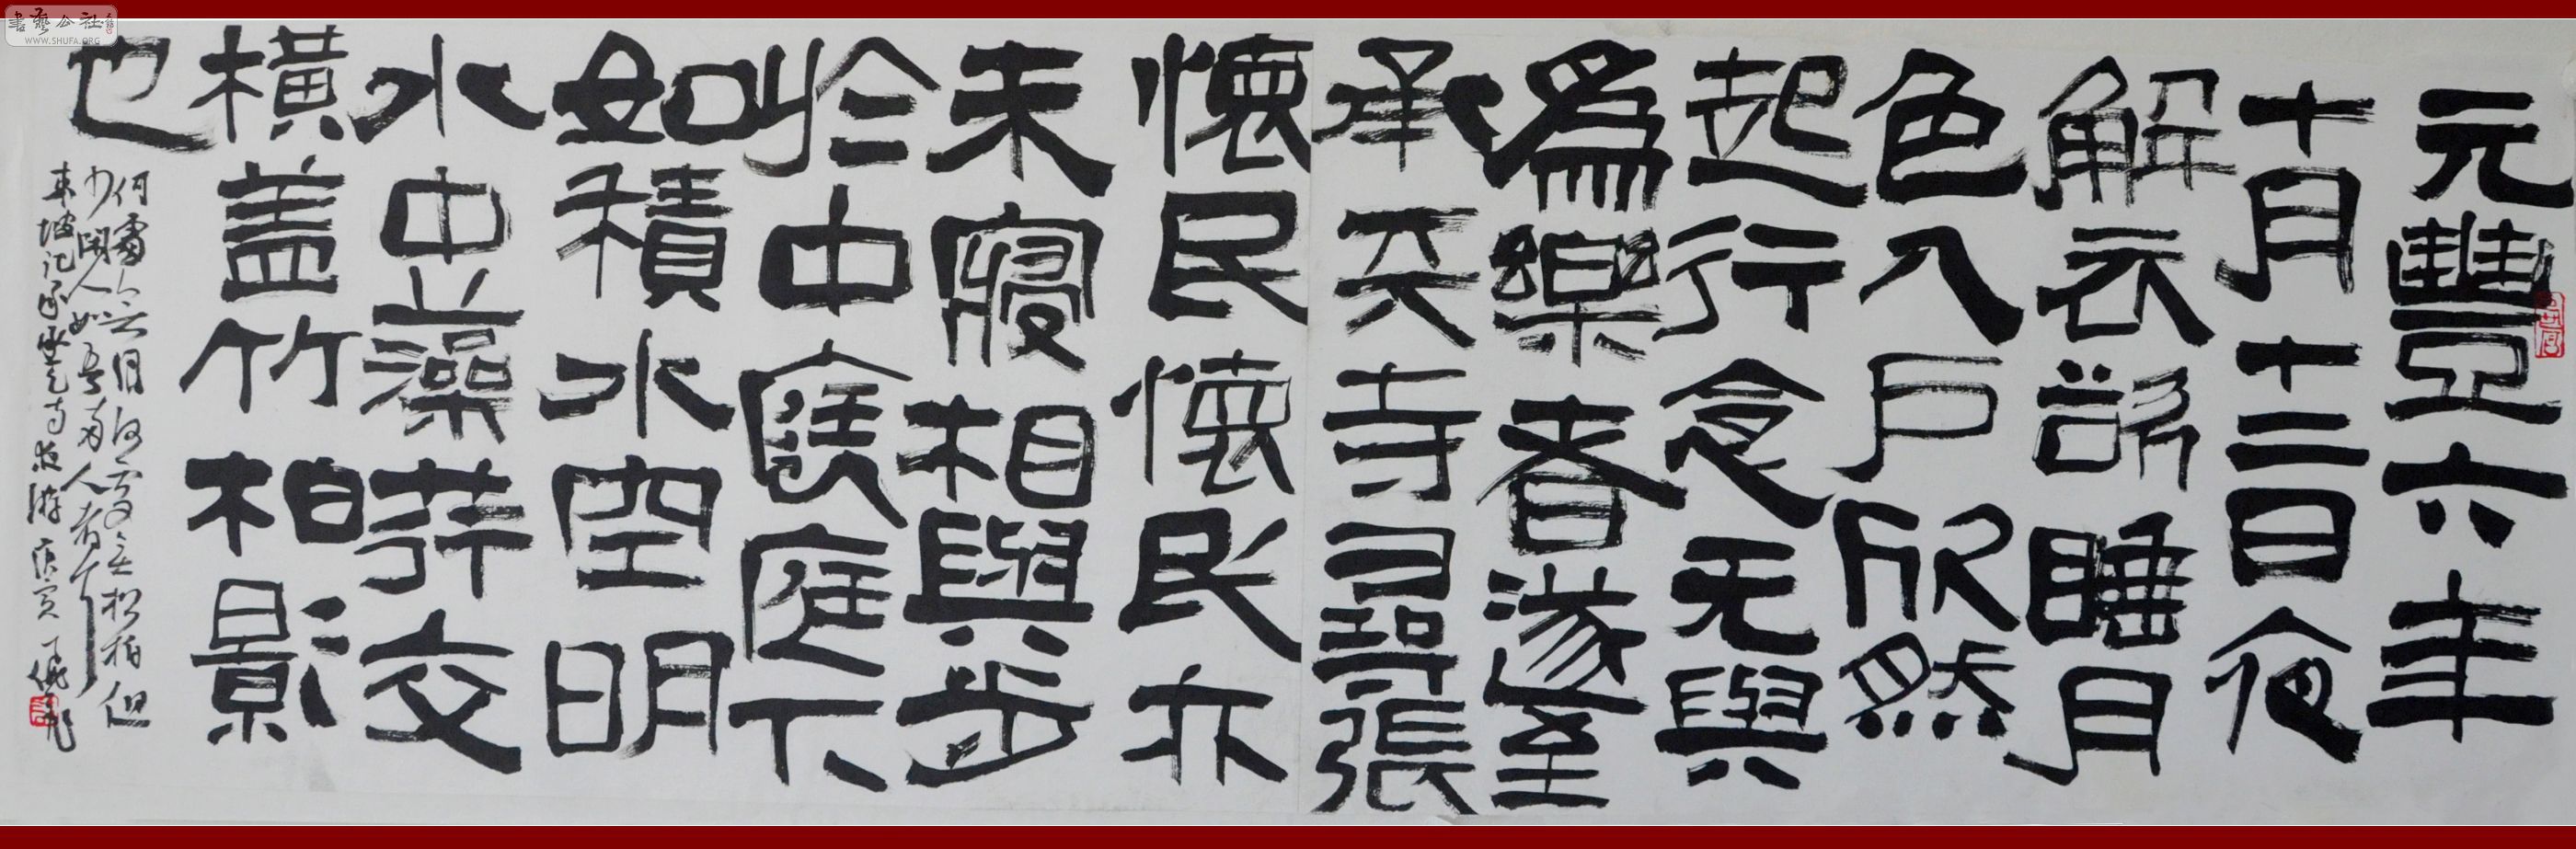 書藝公社
WWW.SHUFA.ORG
元豐六年
十月十二日夜
解衣欲睡月
色入户欣然
起行念无與
為樂者遂至
承天寺尋張
懷民懷民亦
未寢相與步
於中庭庭下
如積水空明
水中藻荇交
橫盖竹柏影
也
何處无月何處无松柏但
少閑人如吾兩人者耳
東坡記承天寺夜游